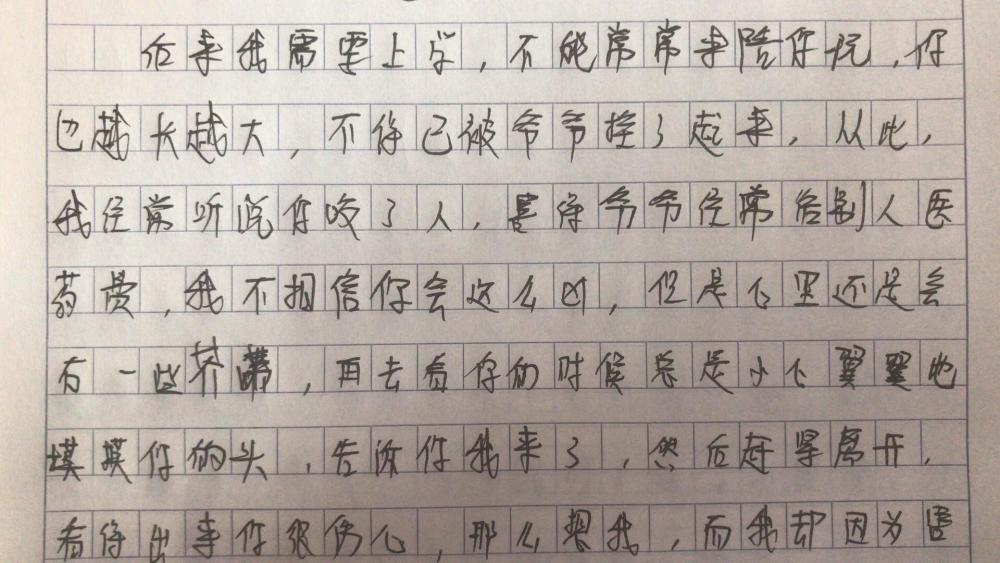 后来我需要上学,不能常常来陪你玩,你
也越长越大,不得已被爷爷拴了起来,从此,
我经常听说你咬了人,害得爷爷经常给别人医
药费,我不相信你会这么凶,但是心里还是会
有一些芥蒂,再去看你的时候总是小心翼翼地
摸摸你的头,告诉你我来了,然后赶紧离开,
看得出来你很伤心,那么想我,而我却因为害